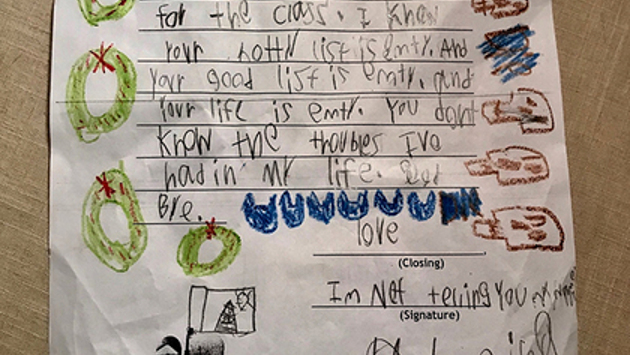 for the class. I know
your notty list is emty. And
your good list is emty. and
your life is emty. You dont
know the troubles Ive
had in my life. Good
Bye.
love
(Closing)
Im Not telling you my name
(Signature)